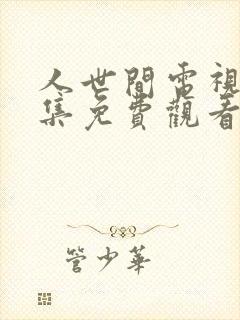 人世間電視
集免費觀看
管少華